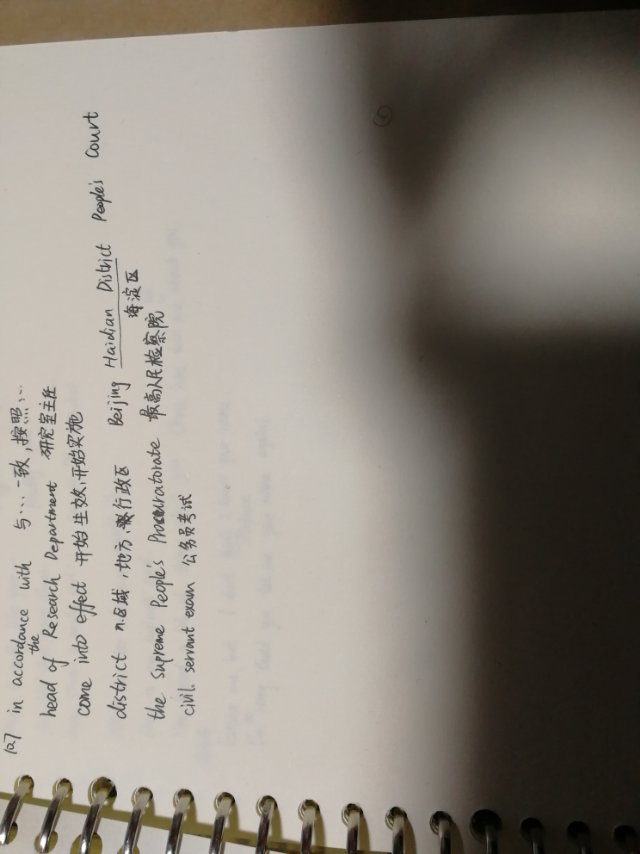 127 in accordance with 与…一致,按照…
the
head of Research Department 研究室主任
come into effect 开始生效,开始实施
district n.区域,地方,行政区 Beijing Haidian District People's Court
海淀区
the Supreme People's Procuratorate 最高人民检察院
civil servant exam 公务员考试